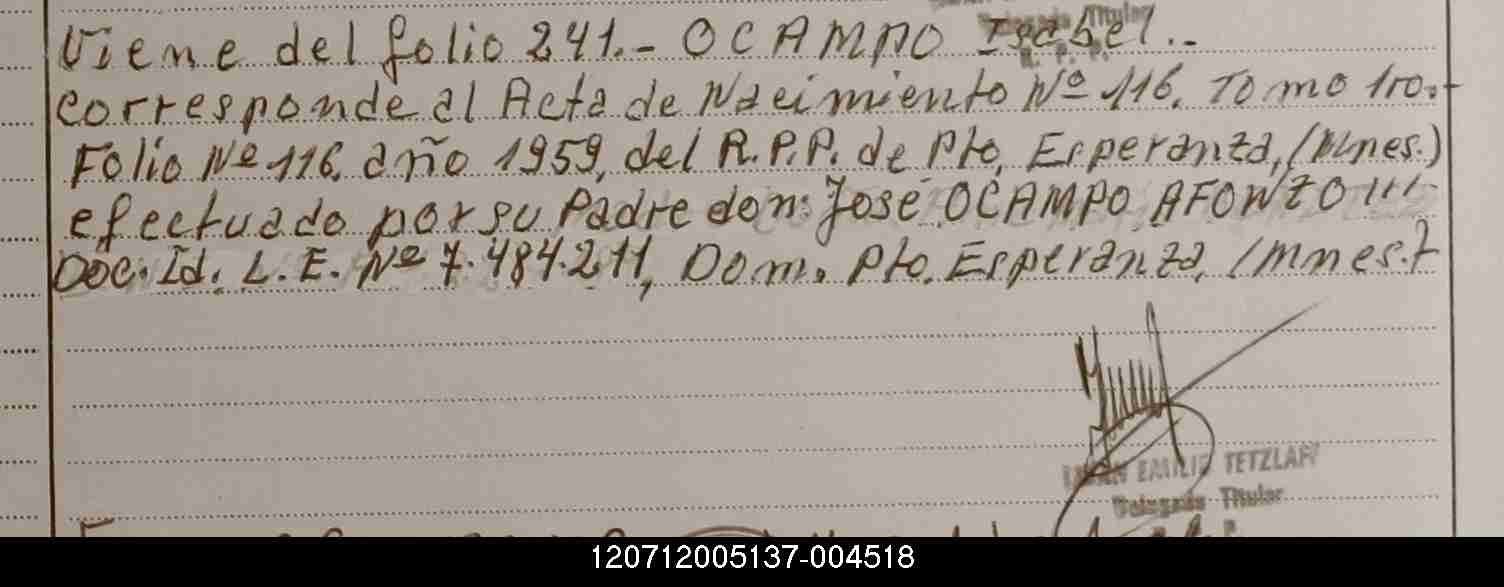 Delegado Titular
Viene del folio 241.- OCAMPO Isabel.-
corresponde al Acta de Nacimiento Nº 116. Tomo 1ro.-
Folio Nº 116. año 1959, del R.P.P. de Pto. Esperanza, (Mnes.)
efectuado por su Padre don: José OCAMPO AFONZO
Doc. Id. L.E. Nº 7.484.211, Dom. Pto. Esperanza, (Mnes.)
EMILIO TETZLAFF
Delegado Titular
120712005137-004518